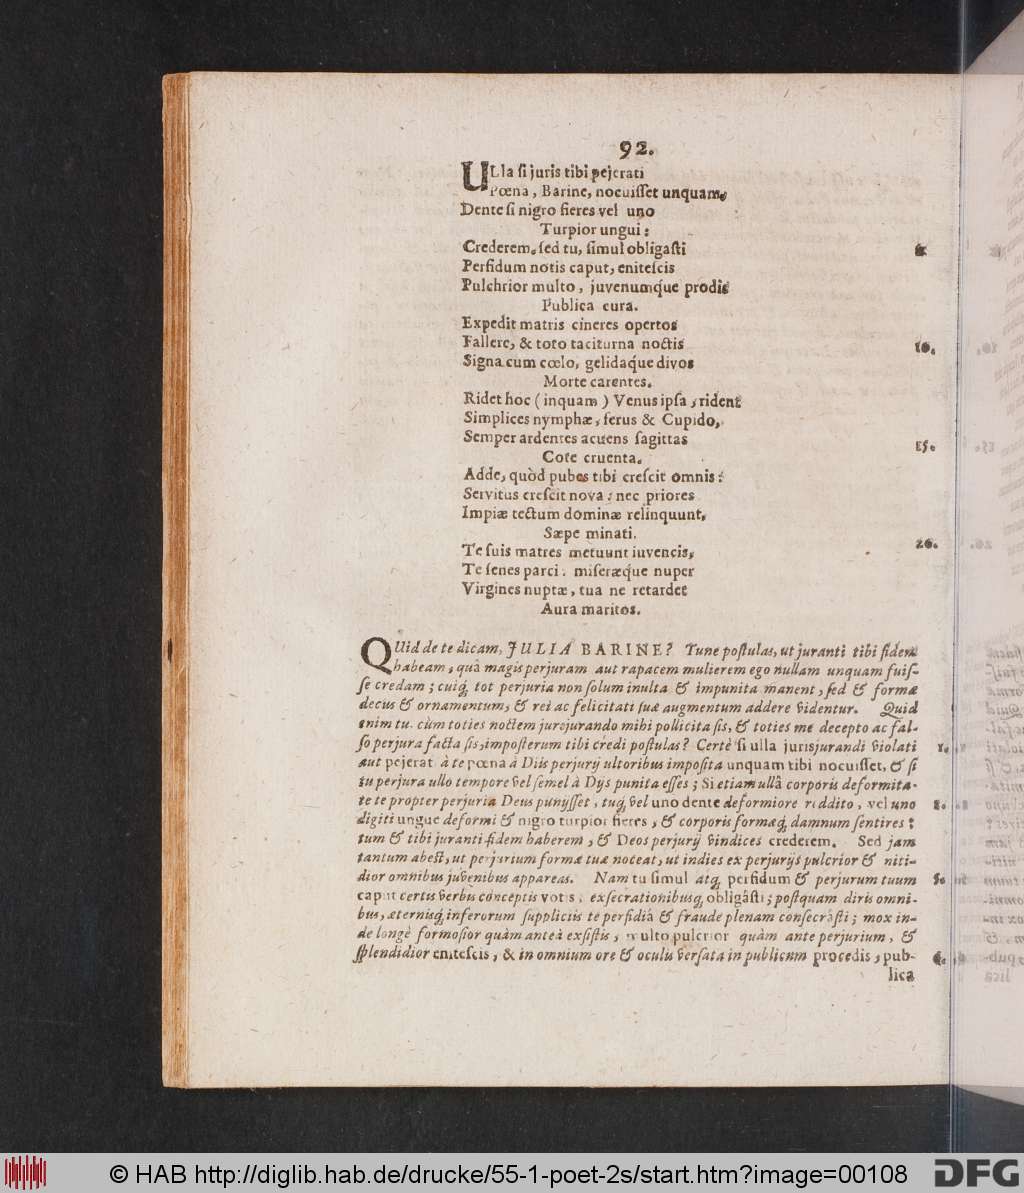 92.
ULla ſi juris tibi pejerati
Pœna, Barine, nocuiſſet unquam,
Dente ſi nigro fieres vel uno
Turpior ungui:
Crederem. ſed tu, ſimul obligaſti
Perfidum notis caput, eniteſcis
Pulchrior multo, juvenumq́ue prodis
Publica cura.
Expedit matris cineres opertos
Fallere, & toto taciturna noctis
10.
Signa cum cœlo, gelidaq́ue divos
Morte carentes.
Ridet hoc ( inquam ) Venus ipſa, rident
Simplices nymphæ, ferus & Cupido,
Semper ardentes acuens ſagittas
15.
Cote cruenta.
Adde, quòd pubes tibi creſcit omnis:
Servitus creſcit nova: nec priores
Impiæ tectum dominæ relinquunt,
Sæpe minati.
20.
Te ſuis matres metuunt iuvencis,
Te ſenes parci: miſeræque nuper
Virgines nuptæ, tua ne retardet
Aura maritos.
QUid de te dicam, JULIA BARINE? Tune poſtulas, ut juranti tibi fidem
habeam, quâ magis perjuram aut rapacem mulierem ego nullam unquam fuiſ-
ſe credam; cuiq́; tot perjuria non ſolum inulta & impunita manent, ſed & formæ
decus & ornamentum, & rei ac felicitati ſuæ augmentum addere videntur. Quid
enim tu. cùm toties noctem jurejurando mihi pollicita ſis, & toties me decepto ac fal-
ſo perjura facta ſis, impoſterum tibi credi poſtulas? Certè ſi ulla juris jurandi violati
1.
aut pejerati à te pœna à Diis perjurij ultoribus impoſita unquam tibi nocuiſſet, & ſi
tu perjura ullo tempore vel ſemel à Dijs punita eſſes; Si etiam ullâ corporis deformita-
te te propter perjuria Deus punyſſet, tuq́; vel uno dente deformiore reddito, vel uno
digiti ungue deformi & nigro turpior fieres, & corporis formæq́; damnum ſentires:
tum & tibi juranti fidem haberem, & Deos perjurij vindices crederem. Sed jam
tantum abeſt, ut perjurium formæ tuæ noceat, ut indies ex perjurijs pulcrior & niti-
dior omnibus juvenibus appareas. Nam tu ſimul atq́; perfidum & perjurum tuum
5.
caput certis verbis conceptis votis, exſecrationibusq́; obligâſti; poſtquam diris omni-
bus, æternisq́; inferorum ſuppliciis te perfidiâ & fraude plenam conſecrâſti; mox in-
de longè formoſior quàm anteà exſiſtis, multo pulcrior quàm ante perjurium, &
ſplendidior eniteſcis, & in omnium ore & oculis verſata in publicum procedis, pub-
6.
lica
© HAB http://diglib.hab.de/drucke/55-1-poet-2s/start.htm?image=00108
DFG